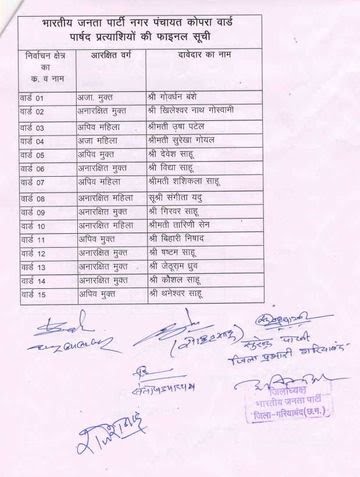 भारतीय जनता पार्टी नगर पंचायत कोपरा वार्ड
पार्षद प्रत्याशियों की फाइनल सूची
निर्वाचन क्षेत्र का क. व नाम आरक्षित वर्ग दावेदार का नाम
वार्ड 01 अजा. मुक्त श्री गोवर्धन बंशे
वार्ड 02 अनारक्षित मुक्त श्री खिलेश्वर नाथ गोस्वामी
वार्ड 03 अपिव महिला श्रीमती उषा पटेल
वार्ड 04 अजा महिला श्रीमती सुरेखा गोयल
वार्ड 05 अपिव मुक्त श्री देवेश साहू
वार्ड 06 अनारक्षित मुक्त श्री विद्या साहू
वार्ड 07 अपिव महिला श्रीमती शशिकला साहू
वार्ड 08 अनारक्षित महिला सुश्री संगीता यदु
वार्ड 09 अनारक्षित मुक्त श्री गिरवर साहू
वार्ड 10 अनारक्षित महिला श्रीमती तारिणी सेन
वार्ड 11 अपिव मुक्त श्री बिहारी निषाद
वार्ड 12 अनारक्षित मुक्त श्री षष्टम साहू
वार्ड 13 अनारक्षित मुक्त श्री जेठूराम ध्रुव
वार्ड 14 अनारक्षित मुक्त श्री कौशल साहू
वार्ड 15 अनारक्षित मुक्त श्री थनेश्वर साहू
जिला प्रभारी गरियाबंद
जिलाध्यक्ष
भारतीय जनता पार्टी
जिला-गरियाबंद (छ.ग.)